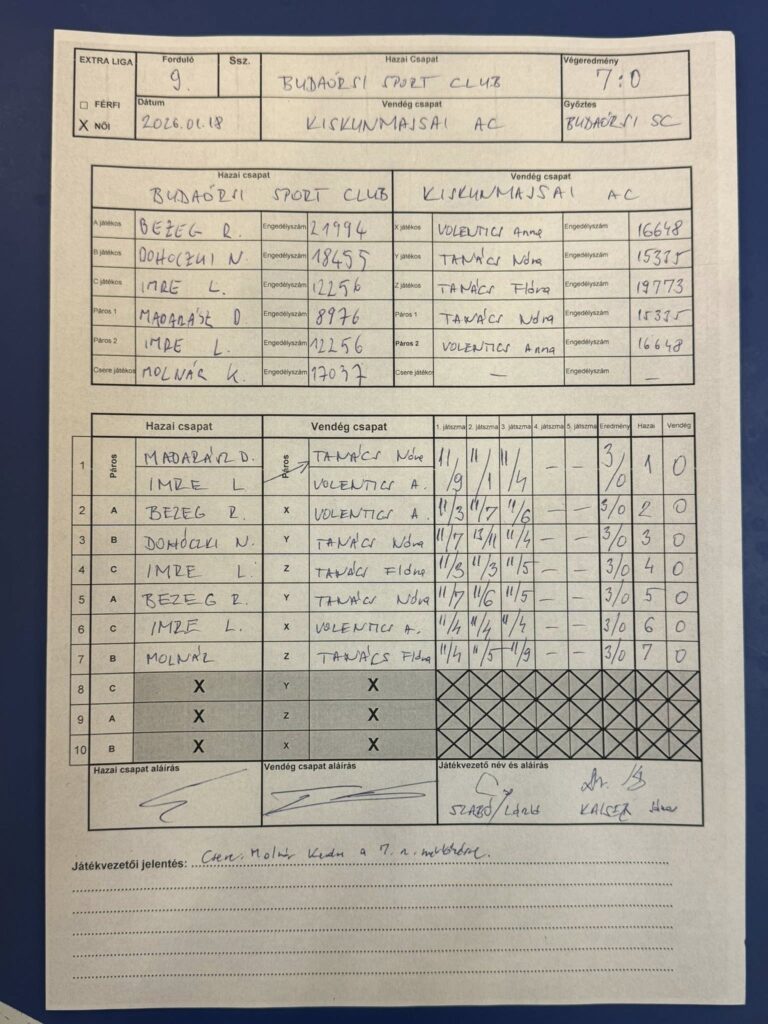 EXTRA LIGA Forduló Ssz. Hazai Csapat Végeredmény
9. BUDAÖRSI SPORT CLUB 7:0
☐ FÉRFI Dátum Vendég csapat Győztes
X NŐI 2026.01.18 KISKUNMAJSAI AC BUDAÖRSI SC
Hazai csapat Vendég csapat
BUDAÖRSI SPORT CLUB KISKUNMAJSAI AC
A játékos BEZEG R. Engedélyszám 21994 X játékos VOLENTICS Anna Engedélyszám 16648
B játékos DOHÓCZKI N. Engedélyszám 18455 Y játékos TANÁCS Nóra Engedélyszám 15335
C játékos IMRE L. Engedélyszám 12256 Z játékos TANÁCS Flóra Engedélyszám 19773
Páros 1 MADARÁSZ D. Engedélyszám 8976 Páros 1 TANÁCS Nóra Engedélyszám 15335
Páros 2 IMRE L. Engedélyszám 12256 Páros 2 VOLENTICS Anna Engedélyszám 16648
Csere játékos MOLNÁR K. Engedélyszám 17037 Csere játékos — Engedélyszám —
Hazai csapat Vendég csapat 1. játszma 2. játszma 3. játszma 4. játszma 5. játszma Eredmény Hazai Vendég
1 Páros MADARÁSZ D. Páros TANÁCS Nóra 11/9 11/1 11/4 — — 3/0 1 0
IMRE L. VOLENTICS A.
2 A BEZEG R. X VOLENTICS A. 11/3 11/7 11/6 — — 3/0 2 0
3 B DOHÓCZKI N. Y TANÁCS Nóra 11/7 13/11 11/4 — — 3/0 3 0
4 C IMRE L. Z TANÁCS Flóra 11/3 11/3 11/5 — — 3/0 4 0
5 A BEZEG R. Y TANÁCS Nóra 11/7 11/6 11/5 — — 3/0 5 0
6 C IMRE L. X VOLENTICS A. 11/4 11/4 11/4 — — 3/0 6 0
7 B MOLNÁR Z TANÁCS Flóra 11/4 11/5 11/9 — — 3/0 7 0
8 C X Y X
9 A X Z X
10 B X X X
Hazai csapat aláírás Vendég csapat aláírás Játékvezető név és aláírás
SZABÓ László KAISER János
Játékvezetői jelentés: Csere: Molnár Kedu a 7. n. mérkőzésre.